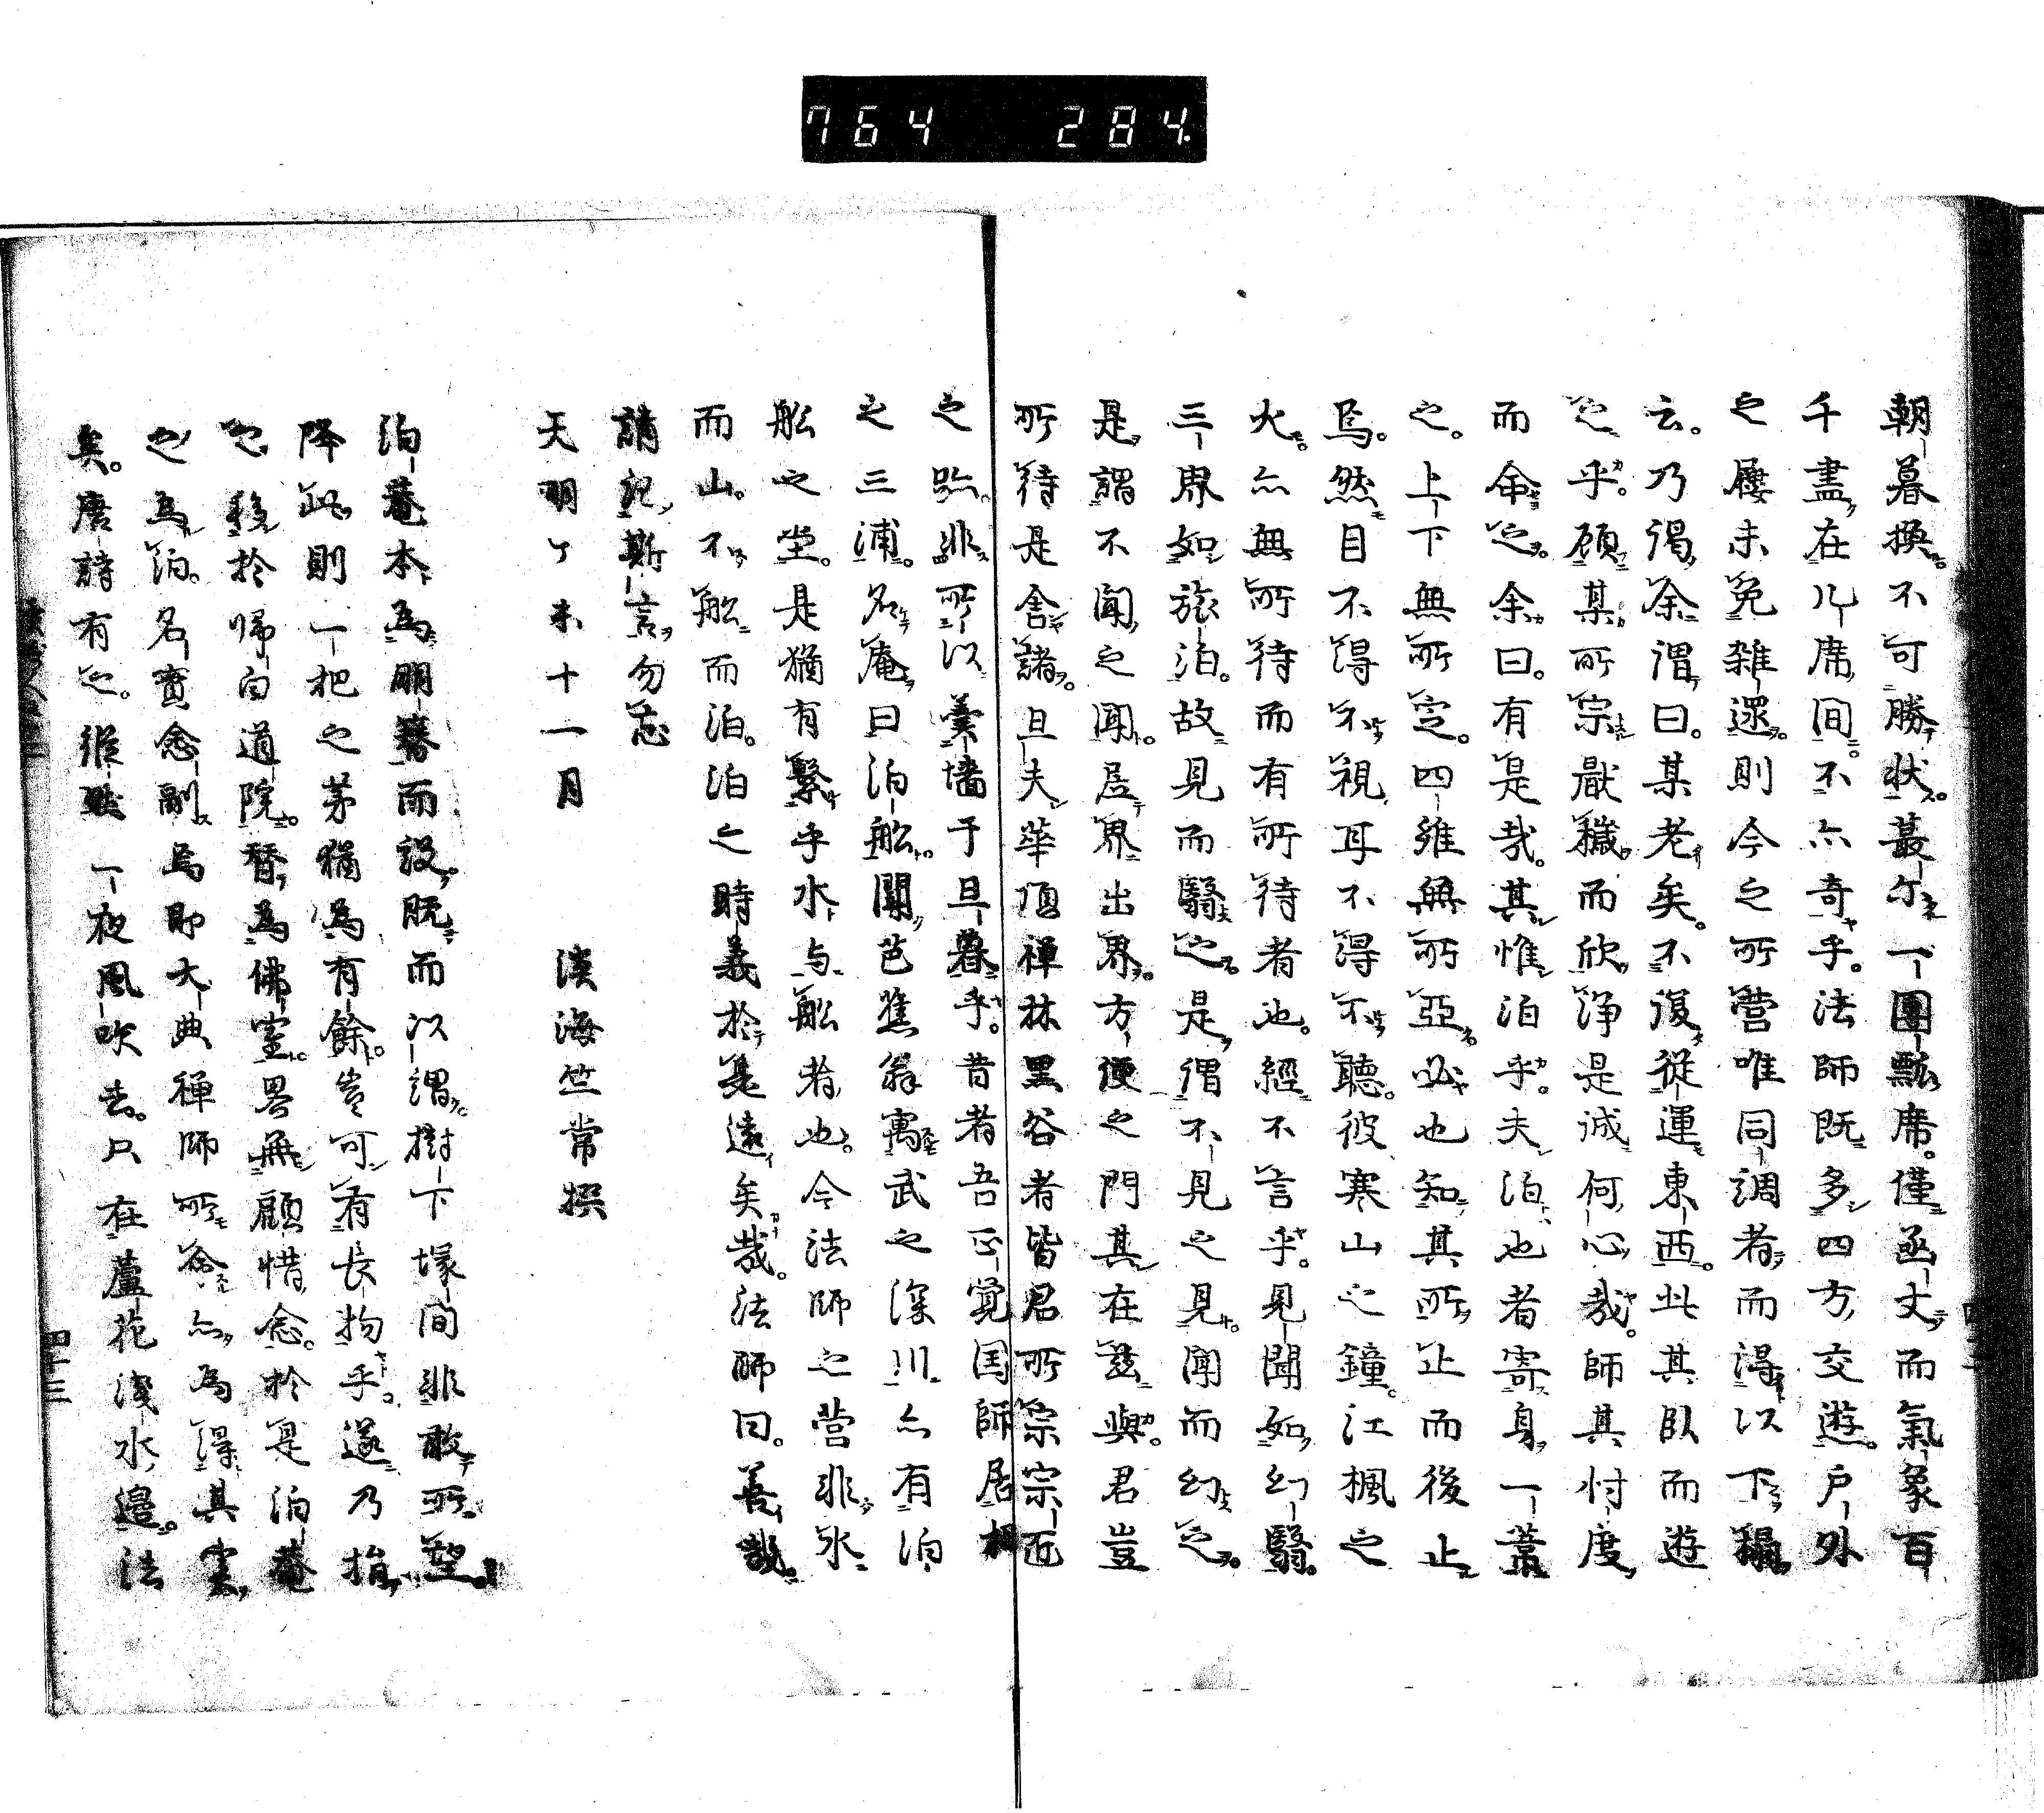 764 284
朝暮換不可勝状蕞尓一團瓢席僅函丈而氣象百
千盡在几席間不亦奇乎法師既多四方交遊戸外
之屨未免雑遝則今之所营唯同調者而得以下榻
云乃偈余謂曰某老矣不復從運東西此其臥而遊
之乎顧某所宗厭穢而欣浄是诚何心哉師其忖度
而命之余曰有是哉其惟泊乎夫泊也者寄身一葉
之上下無所定四維無所亞必也知其所止而後止
焉然目不得不視耳不得不聽彼寒山之鐘江楓之
火亦無所待而有所待者也經不言乎見聞如幻翳
三界如旅泊故見而翳之是謂不見之見聞而幻之
是謂不聞之聞居界出界方便之門其在玆與君豈
所待是舎諸且夫華頂禅林黒谷者皆君所宗宗匠
之跡非所以羹墻于旦暮乎昔者吾正覚国師居相
之三浦名庵曰泊舩聞芭蕉翁寓武之深川亦有泊
舩之坐是猶有繫乎水与舩者也今法師之营非水
而山不舩而泊泊之時義於是遠矣哉法師曰善哉
請紀斯言勿忘
天明丁未十一月　　淡海竺常撰
泊菴本為朋簪而設既而以謂樹下塚間非敢所望
降此則一把之茅猶為有餘豈可有長物乎遂乃捨
之移於帰白道院暫為佛室畧無顧惜念於是泊菴
之為泊名實念副焉即大典禅師所命亦為得其實
矣唐詩有之縱然一夜風吹去只在蘆花淺水邉法
四十三